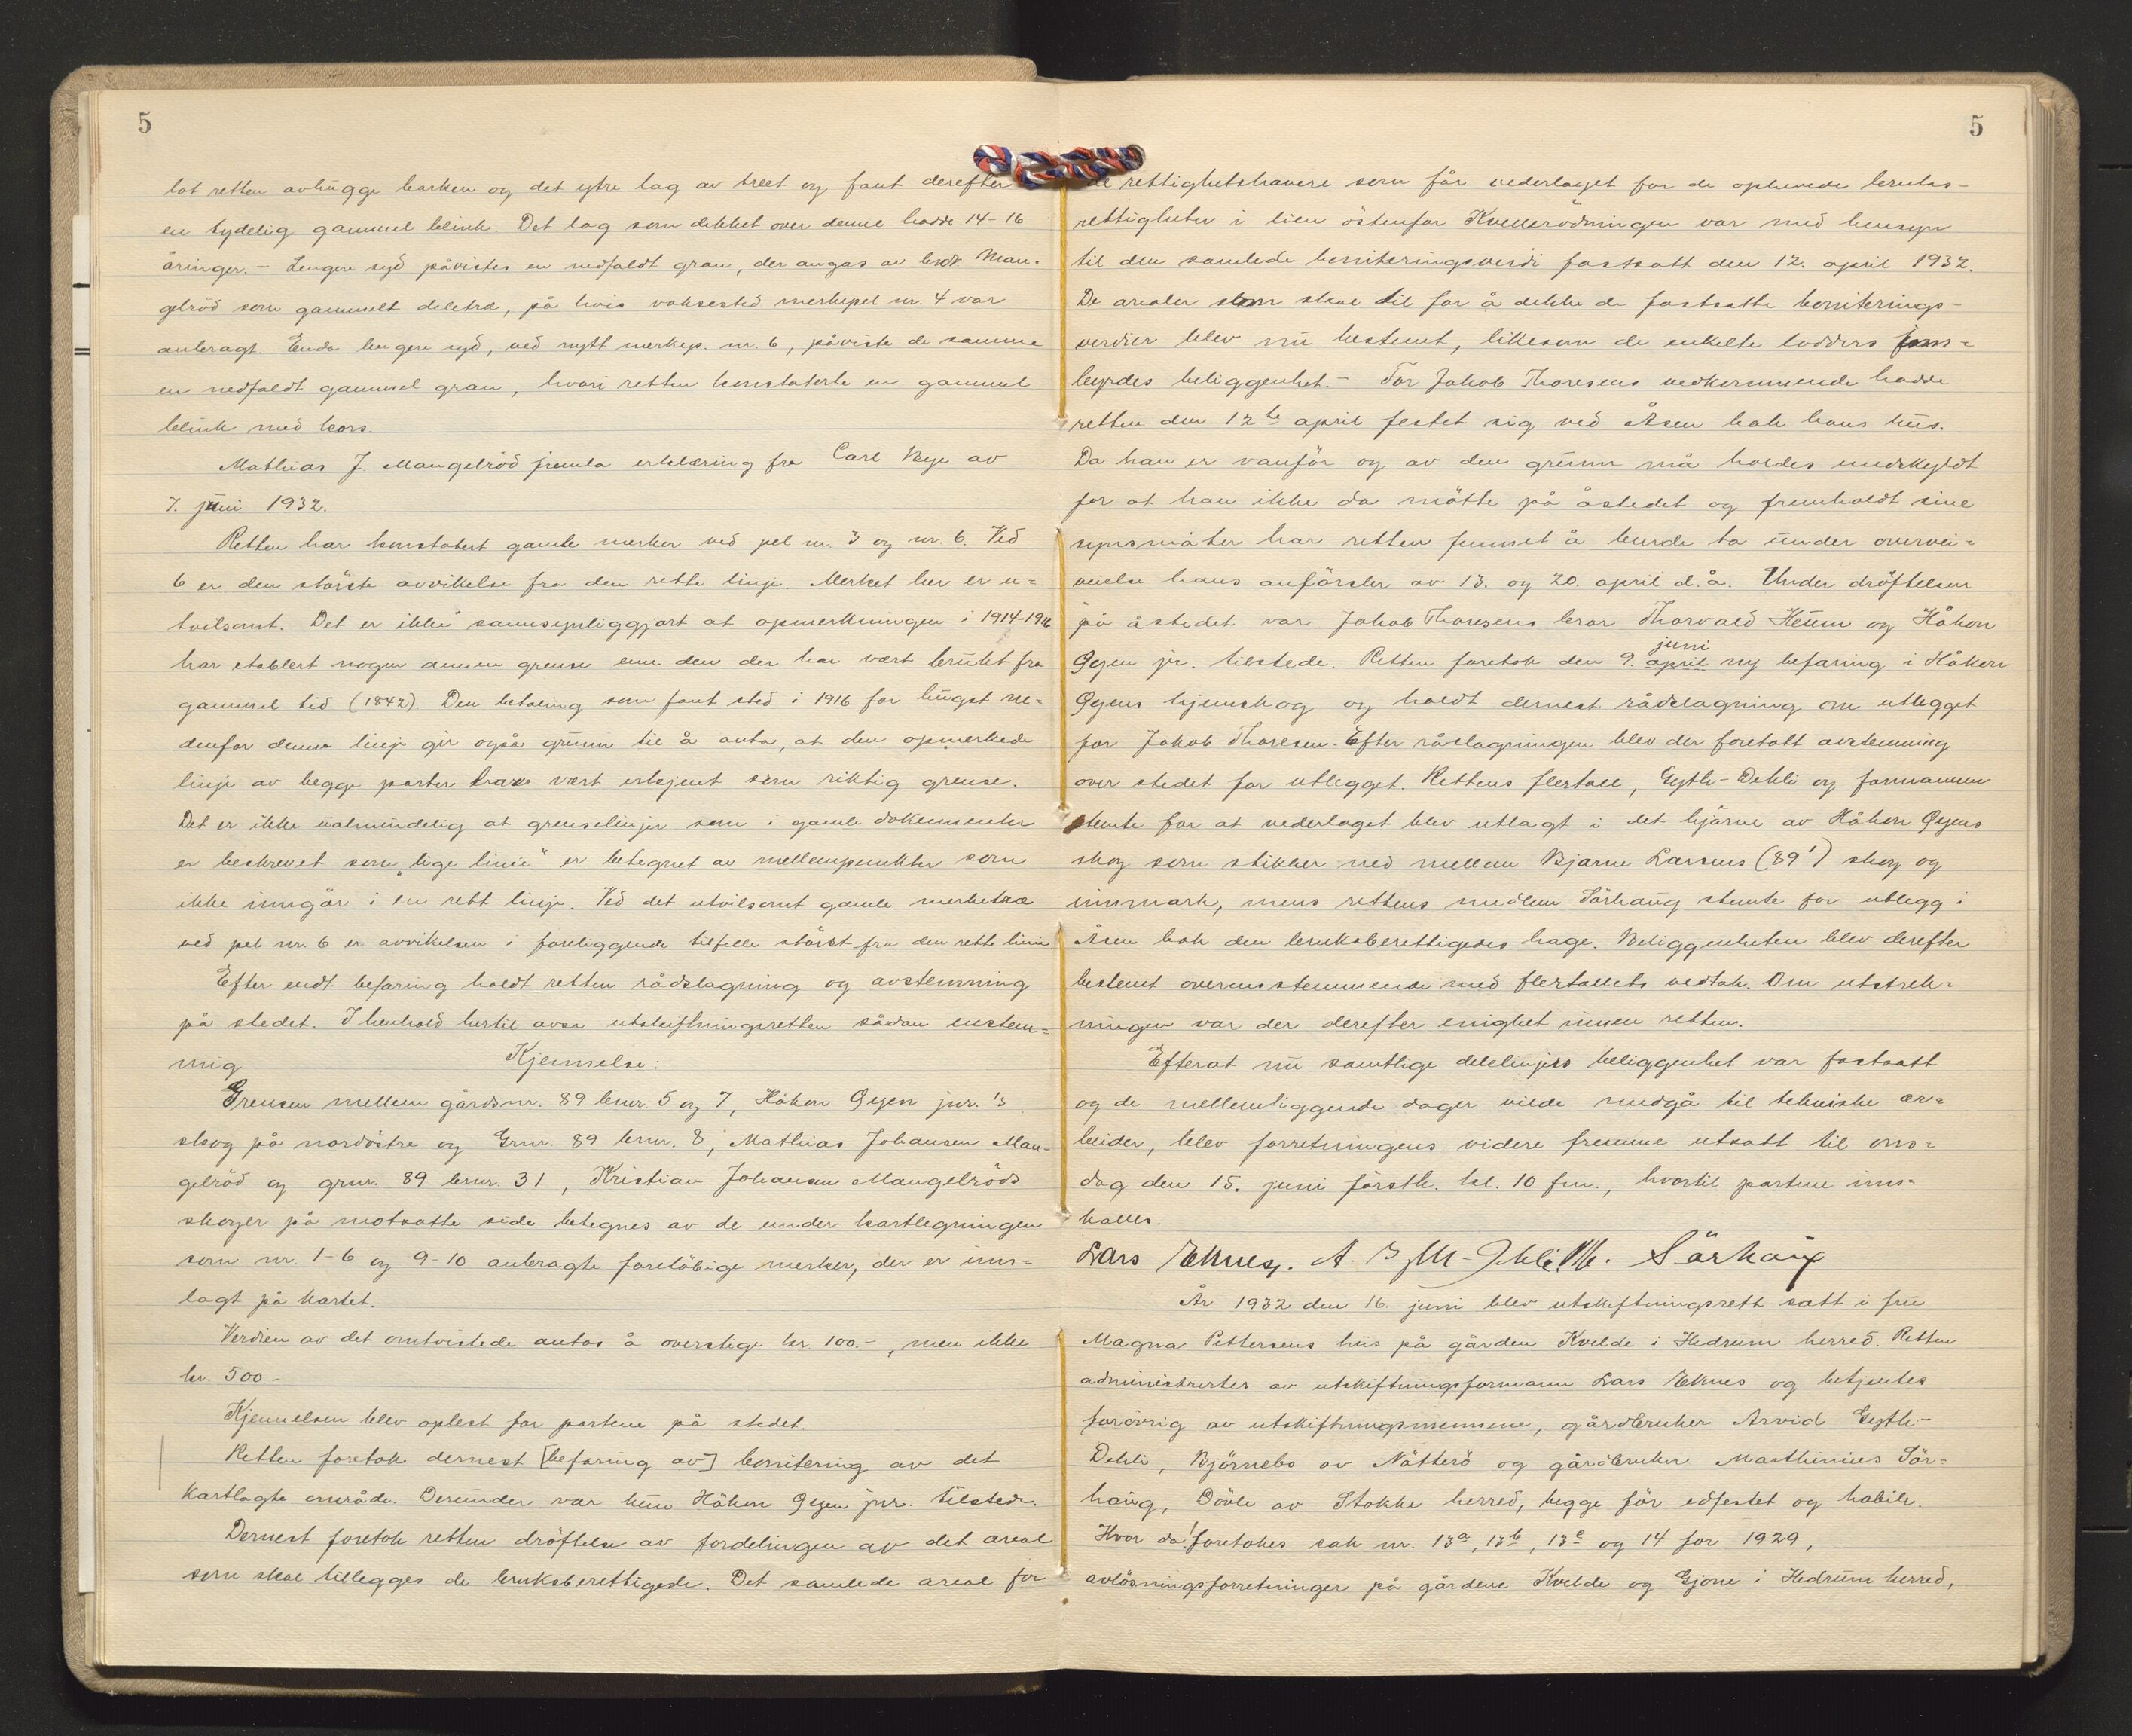 5
lot retten avhugge barken og det ytre lag av treet og fant derefter
en tydelig gammel blink. Det lag som dekket over denne hadde 14-16
åringer. - Lengere syd påvistes en nedfaldt gran, der angas av brdr. Man-
gelröd som gammelt deletre, på hvis voksested merkepel nr. 4 var
anbragt. Enda lengere syd, ved nytt merkep. nr. 6, påviste de samme
en nedfaldt gammel gran, hvori retten konstaterte en gammel
blink med kors.
Mathias J. Mangelröd fremla erklæring fra Carl Bye av
7. juni 1932.
Retten har konstatert gamle merker ved pel nr. 3 og nr. 6. Ved
6 er den störste avvikelse fra den rette linje. Merket her er u=
tvilsomt. Det er ikke sannsynliggjort at opmerkningen i 1914-1916
har etablert nogen annen grense enn den der har vært brukt fra
gammel tid (1842). Den betaling som fant sted i 1916 for hugst ne=
denfor denne linje gir også grunn til å anta, at den opmerkede
linje av begge parter har vært erkjent som riktig grense.
Det er ikke ualmindelig at grenselinjer som i gamle dokumenter
er beskrevet som „lige linie" er betegnet av mellempunkter som
ikke inngår i en rett linje. Ved det utvilsomt gamle merketræ
ved pel nr. 6 er avvikelsen i foreliggende tilfelle störst fra den rette linie.
Efter endt befaring holdt retten rådslagning og avstemning
på stedet. I henhold hertil avsa utskiftningsretten sådan enstem=
mig Kjennelse:
Grensen mellem gårdsnr. 89 brnr. 5 og 7, Håkon Gjen jnr.'s
skog på nordöstre og Grnr. 89 brnr. 8, Mathias Johansen Man-
gelröd og grnr. 89 brnr. 31, Kristian Johansen Mangelröds
skoger på motsatte side betegnes av de under kartlegningen
som nr. 1-6 og 9-10 anbragte forelöbige merker, der er inn=
lagt på kartet.
Verdien av det omtvistede antas å overstige kr. 100.-, men ikke
kr. 500-
Kjennelsen blev oplest for partene på stedet.
Retten foretok dernest [befaring av] bonitering av det
kartlagte område. Derunder var kun Håkon Gjen jnr. tilstede.
Dernest foretok retten dröftelse av fordelingen av det areal
som skal tillegges de bruksberettigede. Det samlede areal for
5
de rettighetshavere som får vederlaget for de ophevede bruks-
rettigheter i lien östenfor Kvellerödningen var med hensyn
til den samlede boniteringsverdi fastsatt den 12. april 1932.
De arealer som skal til for å dekke de fastsatte boniterings-
verdier blev nu bestemt, likesom de enkelte lodders inn=
byrdes beliggenhet. - For Jakob Thoresens vedkommende hadde
retten den 12te april festet sig ved Åsen bak hans hus.
Da han er vanför og av den grunn må holdes undskyldt
for at han ikke da mötte på åstedet og fremholdt sine
synsmåter har retten funnet å burde ta under overvei=
veielse hans anförsler av 13. og 20. april d.å. Under dröftelsen
på åstedet var Jakob Thoresens bror Thorvald Heum og Håkon
Gjen jr. tilstede. Retten foretok den 9. april juni ny befaring i Håkon
Gjens hjemskog og holdt dernest rådslagning om utlegget
for Jakob Thoresen. Efter råslagningen blev der foretatt avstemning
over stedet for utlegget. Rettens flertall, Gyth-Dehli og formannen
stemte for at vederlaget blev utlagt i det hjörne av Håkon Gjens
skog som stikker ned mellem Bjarne Larsens (89¹) skog og
innmark, mens rettens medlem Sörhaug stemte for utlegg i
Åsen bak den bruksberettigedes hage. Beliggenheten blev derefter
bestemt overensstemmende med flertallets vedtak. Om utstrek=
ningen var der derefter enighet innen retten.
Efterat nu samtlige delelinjers beliggenhet var fastsatt
og de mellemliggende dager vilde medgå til tekniske ar=
beider, blev forretningens videre fremme utsatt til ons=
dag den 15. juni förstk. kl. 10 fm., hvortil partene inn-
kalles.
Lars Eknes. A. Gyth-Dehli. M. Sörhaug
År 1932 den 16. juni blev utskiftningsrett satt i fru
Magna Pettersens hus på gården Kvelde i Hedrum herred. Retten
administrertes av utskiftningsformann Lars Eknes og betjentes
forövrig av utskiftningsmennene, gårdbruker Arvid Gyth-
Dehli, Björnebo av Nötterö og gårdbruker Marthinius Sör-
haug, Dövle av Stokke herred, begge för edfestet og habile.
Hvor da! foretokes sak nr. 13a, 13b, 13c og 14 for 1929,
avlösningsforretninger på gårdene Kvelde og Gjone i Hedrum herred,